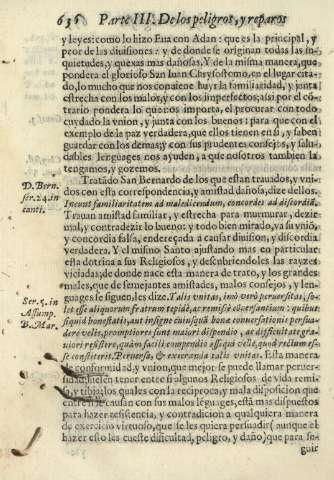 636 Parte III. De los peligros, y reparos
y leyes: como lo hizo Eua con Adan: que es la principal, y
peor de las diuisiones: y de donde se originan todas las in-
quietudes, y quexas mas dañosas. Y de la misma manera, que
pondera el glorioso San Juan Chrysostomo, en el lugar cita-
do, lo mucho que nos conuiene huyr la familiaridad, y junta
estrecha con los malos, y con los imperfectos; assi por el có-
trario pondera lo que nos importa, el procurar con todo
cuydado la vnion, y junta con los buenos: para que con el
exemplo de la paz verdadera, que ellos tienen en si, y saben
guardar con los demas; y con sus prudentes consejos, y salu-
dables lenguages nos ayuden, a que nosotros tambien la
tengamos, y gozemos.
Tratado San Bernardo de los que estan trauados, y vni-
dos con esta correspondencia, y amistad dañosa, dize dellos.
D. Bern.
ser. 24. in
canti.
Ineunt familiaritatem ad maledicendum, concordes ad discordiã.
Trauan amistad familiar, y estrecha para murmurar, dezir
mal, y contradezir lo bueno: y todo bien mirado, va su vnió,
y concordia falsa, endereçada a causar diuision, y discordia
verdadera. Y el mismo Santo ajustando mas en particular
esta dotrina a sus Religiosos, y descubriendoles las rayzes
viciadas; de donde nace esta manera de trato, y los grandes
males, que de semejantes amistades, malos consejos, y len-
guages se siguen, les dize. Talis vnitas, imò verò peruersitas, so-
Ser. 5. in
Assump.
B. Mar.
let esse aliquorum fratrum tepidè, ac remissè conuersantium: quibus
siquid honestatis, aut insigne cuiusquã bonæ conuersationis persua-
dere velis, promptiores sunt maiori dispendio, ac difficultate gra-
uiori resistere, quàm facili compendio assequi velle, quod rectum es-
se constiterit. Peruersa, & execranda talis vnitas. Esta manera
de conformidad, y vnion, que mejor se puede llamar peruer-
sidad, suelen tener entre si algunos Religiosos de vida remis-
sa, y tibia; los quales con la reciproca, y mala disposicion que
entre si se causan con sus malos léguages, está mas dispuestos
para hazer resistencia, y contradicion a qualquiera manera
de exercicio virtuoso, que se les quiera persuadir (aunque el
hazer esto les cueste dificultad, peligro, y daño) que para se-
guir